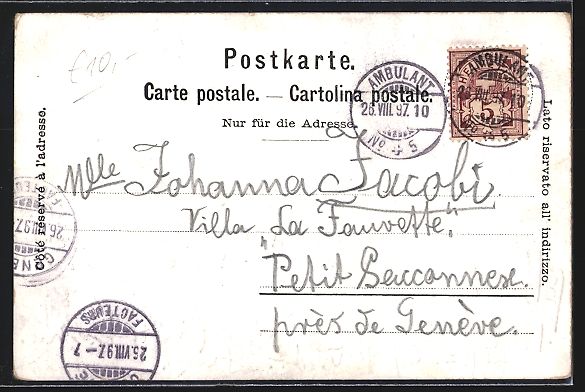 €10,-
Postkarte.
Carte postale. — Cartolina postale.
Nur für die Adresse.
Côté réservé à l'adresse.
Lato riservato all' indirizzo.
AMBULANT
26.VIII.97.10
No 5
AMBULANT
5
No 5
Mlle Johanna Jacobi
Villa La Fauvette,"
"Petit Saconnex.
près de Genève.
FACTEURS
26.VIII.97-7